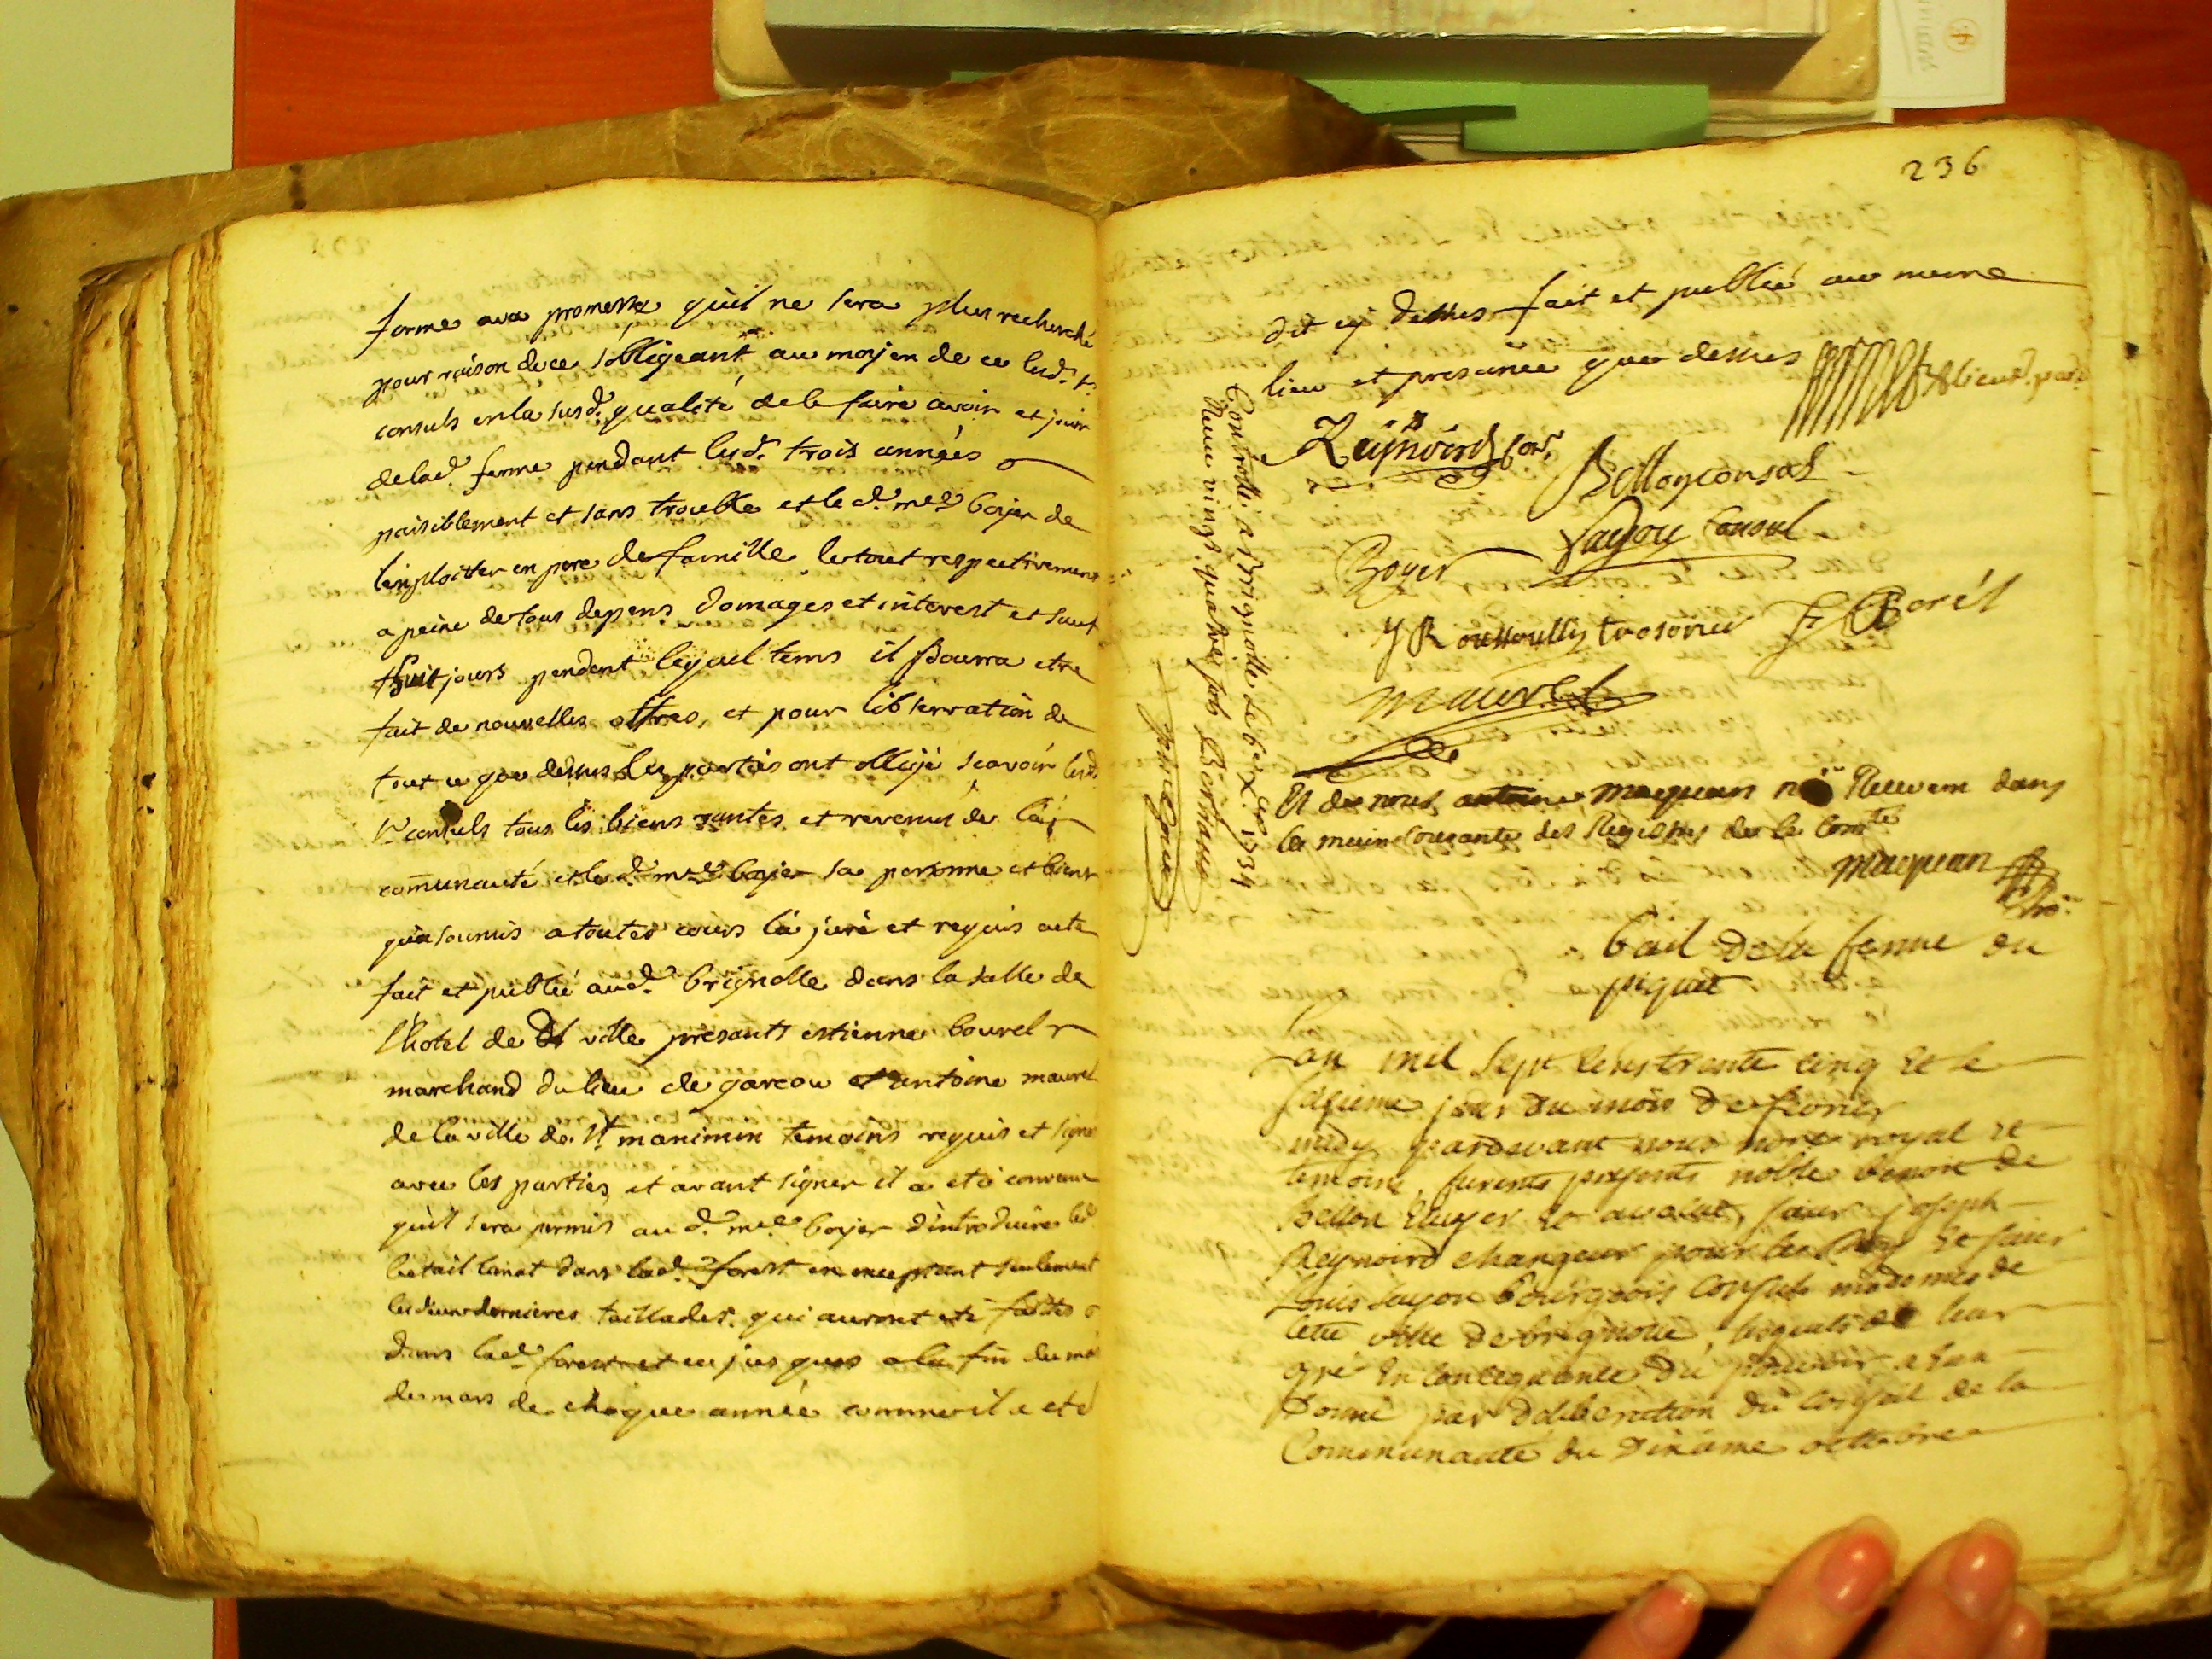 forme avec promesse qu'il ne sera plus recherché
pour raison de ce s'obligeant au moyen de ce lesd. srs
consuls en la susd. qualité de le faire avoir et jouir
de lad. ferme pendant lesd. trois années
paisiblement et sans trouble et led. me boyer de
l'exploitter en pere de famille le tout respectivement
a peine de tous depens domages et interest et sauf
huit jours pendant lequel tems il pourra etre
fait de nouvelles offres, et pour l'observation de
tout ce que dessus les parties ont obligé scavoir lesd.
srs consuls tous les biens rantes et revenus de la
communauté et led. me boyer sa personne et biens
qu'a soumis a toutes cours l'a juré et requis acte
fait et publié aud. brignolle dans la salle de
l'hotel de ville presants estienne bourel
marchand du lieu de gareou et antoine maurel
de la ville de st maximin temoins requis et signé
avec les parties, et avant signer il a eté convenu
qu'il sera permis aud. me boyer d'introduire led.
betail lanat dans lad. forest en exceptant seulement
les deux dernieres taillades qui auront eté faittes
dans lad. forest et ce jusques a la fin du mois
de mars de chaque année comme il a eté
236
dit cy dessus fait et publié au meme
lieu et presance que dessus
Reynoird Con.
Bellon consul
Layon Consul
Boyer
J Roussoully tresorier
F Borél
Maurel
Controllé a Brignolle le 6e Xbre 1734
Reçu vingt quatre sols Bertrand
Et de nous antoine maquan Nre Recevem dans
la main courante des Registres de la Comté
maquan
Nre
bail de la ferme du
piquet
L'an mil sept cens trente cinq et le
sixieme jour du mois de fevrier
midy pardevant nous notre royal et
temoins furents presents noble benoit de
Bellon Ecuyer et avocat, sieur joseph
Reynoird changeur pour le Roy et sieur
Louis Layon bourgeois consuls modernes de
cette ville de brignolle, lesquels de leur
gré en consequance du pouvoir a eux
donné par deliberation du conseil de la
Communauté du dixieme octobre